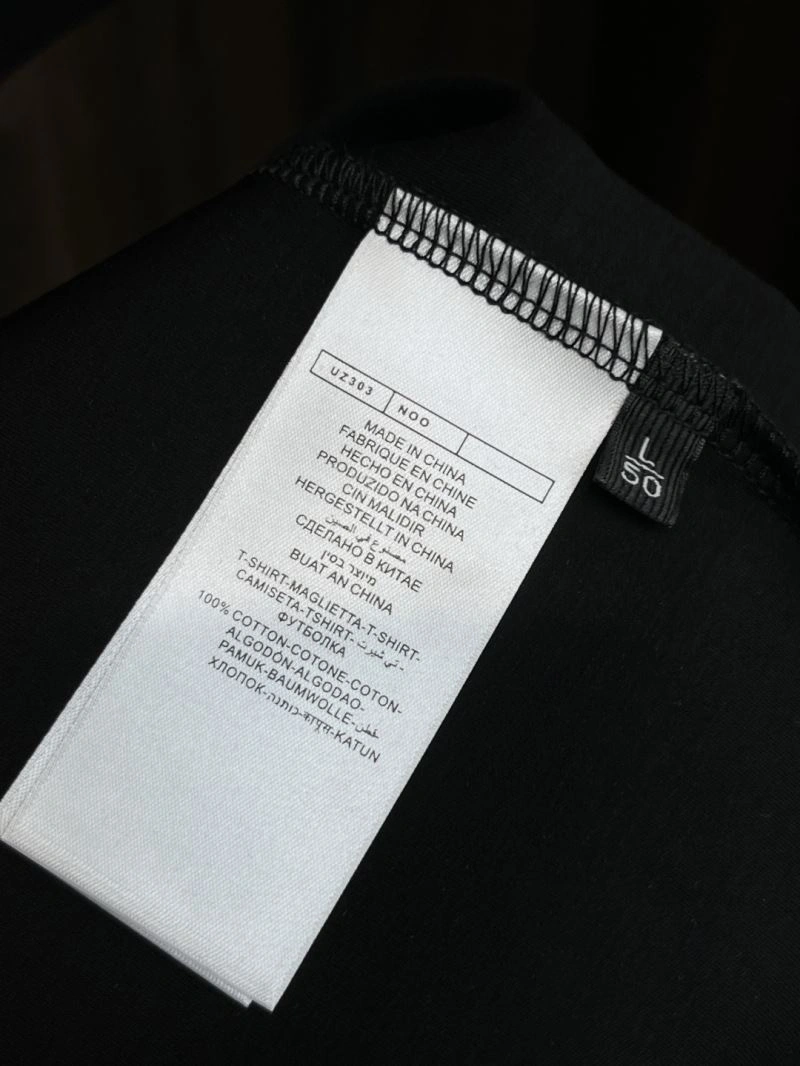 UZ303 NOO
MADE IN CHINA
FABRIQUE EN CHINE
HECHO EN CHINA
PRODUZIDO NA CHINA
CIN MALIDIR
HERGESTELLT IN CHINA
مصنوع في الصين
СДЕЛАНО В КИТАЕ
מיוצר בסין
BUAT AN CHINA
T-SHIRT-MAGLIETTA-T-SHIRT-
CAMISETA-TSHIRT- تي شيرت -
ФУТБОЛКА
100% COTTON-COTONE-COTON-
ALGODÓN-ALGODAO-
PAMUK-BAUMWOLLE-قطن
ХЛОПОК-כותנה-कापूस-KATUN
L
50